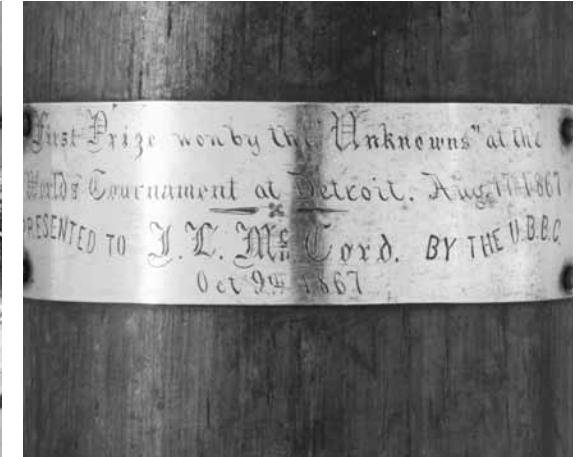 First Prize won by the "Unknowns" at the
World's Tournament at Detroit. Aug. 17th 1867
PRESENTED TO J. L. McCord. BY THE U.B.B.C.
Oct 9th 1867